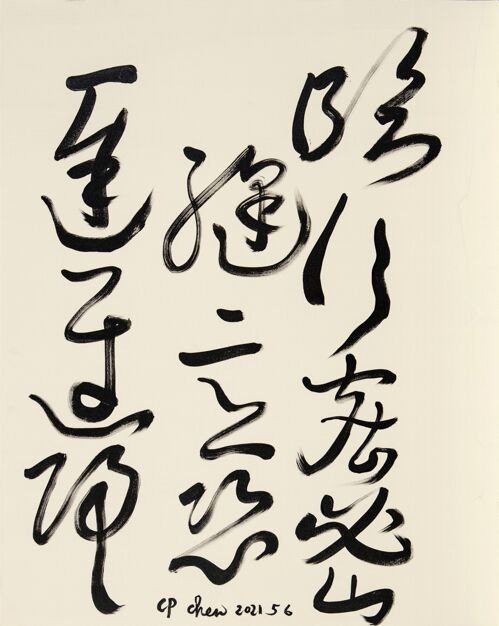 臨行密密
縫意恐
遲遲歸
CP Chen 2021 5 6